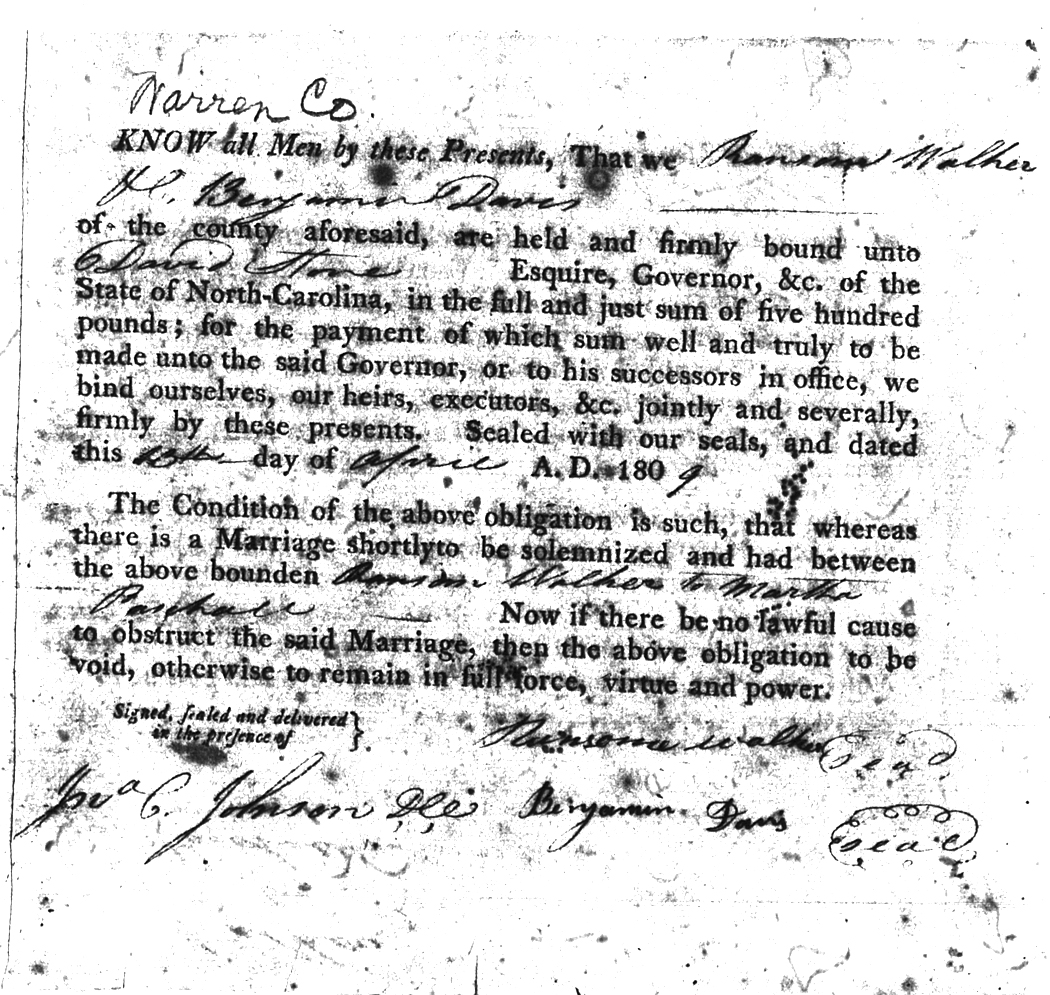 Warren Co.
KNOW all Men by these Presents, That we Ransom Walker
& Benjamin Davis
of the county aforesaid, are held and firmly bound unto
David Stone Esquire, Governor, &c. of the
State of North-Carolina, in the full and just sum of five hundred
pounds; for the payment of which sum well and truly to be
made unto the said Governor, or to his successors in office, we
bind ourselves, our heirs, executors, &c. jointly and severally,
firmly by these presents. Sealed with our seals, and dated
this day of April A. D. 1809
The Condition of the above obligation is such, that whereas
there is a Marriage shortlyto be solemnized and had between
the above bounden Ransom Walker to Martha
Paschall Now if there be no lawful cause
to obstruct the said Marriage, then the above obligation to be
void, otherwise to remain in full force, virtue and power.
Signed, sealed and delivered
in the presence of
Ransome Walker Seal
Jno C. Johnson Benjamin Davis Seal